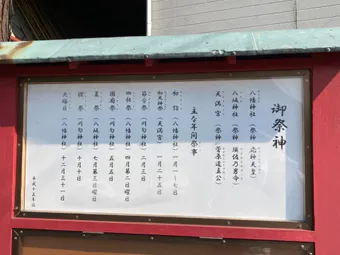 御祭神
八幡神社（祭神 応神天皇）
八坂神社（祭神 須佐乃男命）
天満宮（祭神 菅原道真公）
主な年間祭事
初詣（八幡神社）一月一〜七日
初天神祭（天満宮）一月二十五日
節分祭（八幡神社）二月三日
四社祭（八幡神社）四月第二日曜日
夏祭（八坂神社）七月第三日曜日
例祭（八幡神社）十月十日
大晦日（八幡神社）十二月三十一日